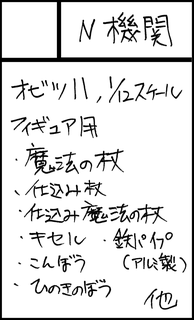 N 機関
オビツ11, 1/12スケール
フィギュア用
・魔法の杖
・仕込み杖
・仕込み魔法の杖
・キセル ・鉄パイプ
・こんぼう (アルミ製)
・ひのきのぼう
他